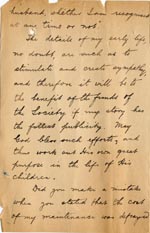 husband, whether I am recognized
at any time or not!
The details of my early life,
no doubt, are such as to
stimulate and create sympathy,
and therefore it will be to
the benefit of the funds of
the Society if my story has
the fullest publicity. May
God bless such efforts, and
this work and His own great
purpose in the life of His
children.
Did you make a mistake
when you stated that the cost
of my maintenance was defrayed